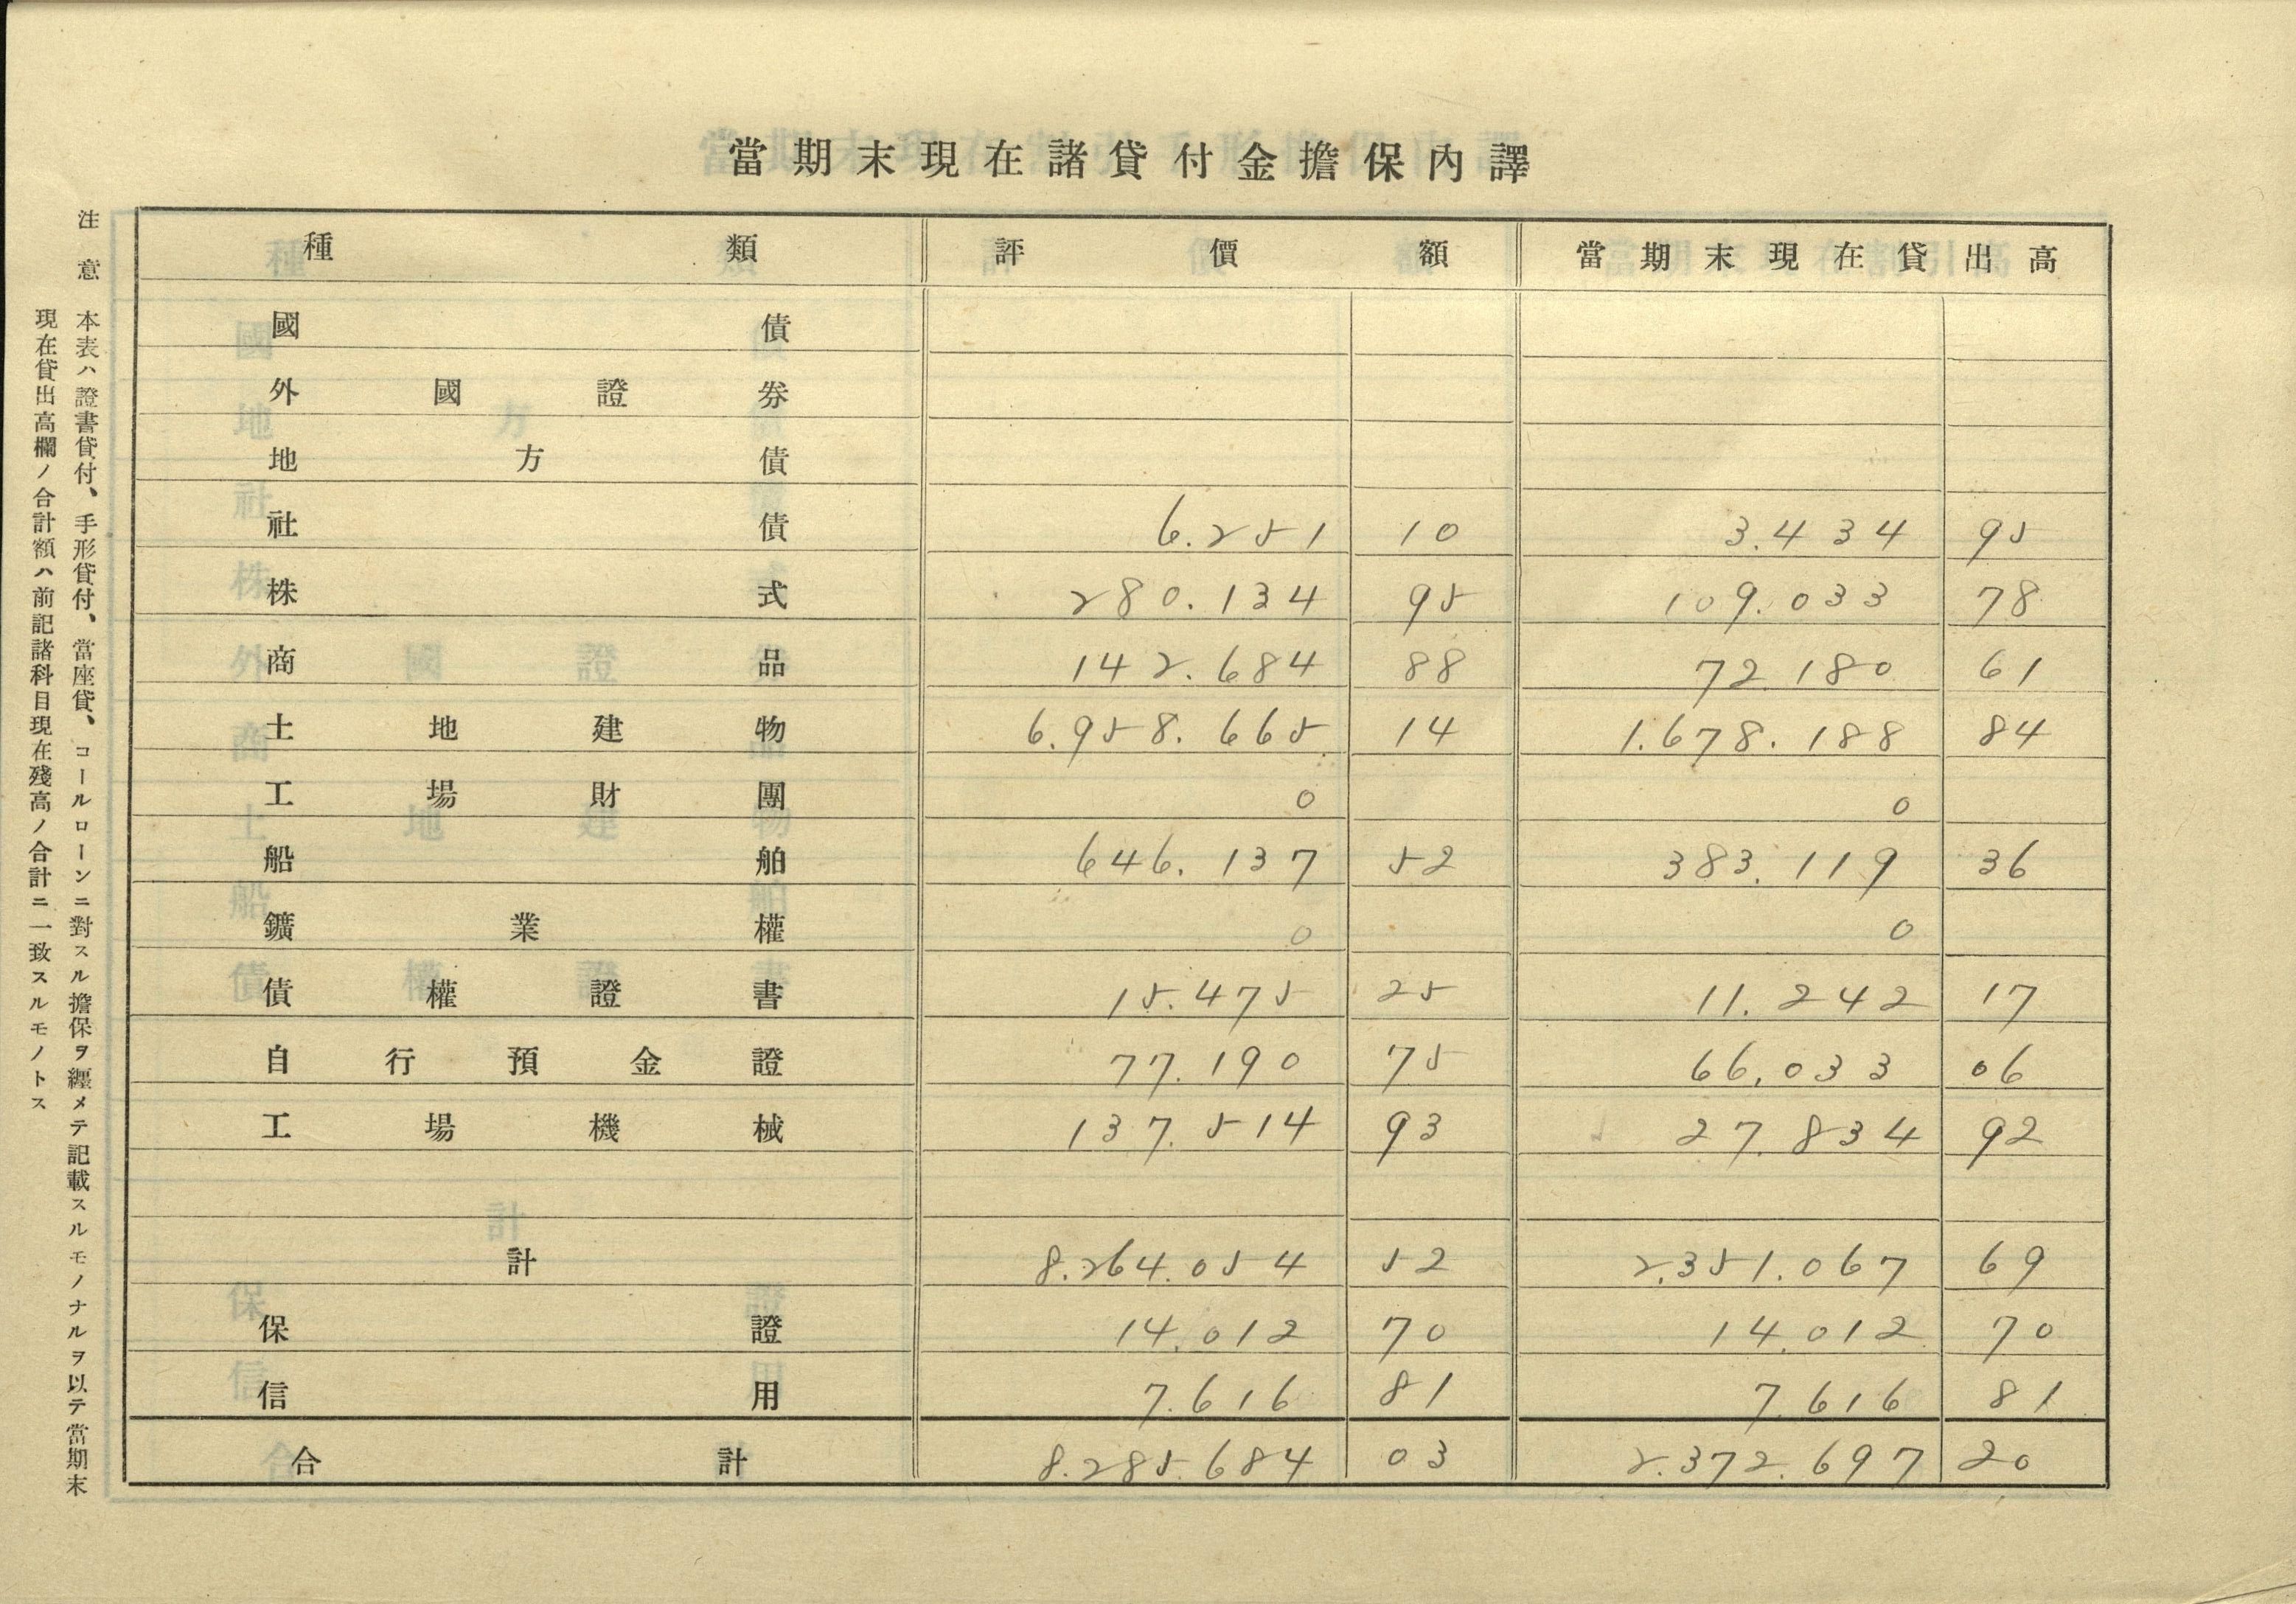 當期末現在諸貸付金擔保內譯
種類 評價額 當期末現在貸出高
國債
外國證券
地方債
社債 6.251 10 3.434 95
株式 280.134 95 109.033 78
商品 142.684 88 72.180 61
土地建物 6.958.665 14 1.678.188 84
工場財團 0 0
船舶 646.137 52 383.119 36
鑛業權 0 0
債權證書 15.475 25 11.242 17
自行預金證 77.190 75 66.033 06
工場機械 137.514 93 27.834 92
計 8.264.054 52 2.351.067 69
保證 14.012 70 14.012 70
信用 7.616 81 7.616 81
合計 8.285.684 03 2.372.697 20
注意 本表ハ證書貸付、手形貸付、當座貸、コールローンニ對スル擔保ヲ纒メテ記載スルモノナルヲ以テ當期末
現在貸出高欄ノ合計額ハ前記諸科目現在殘高ノ合計ニ一致スルモノトス